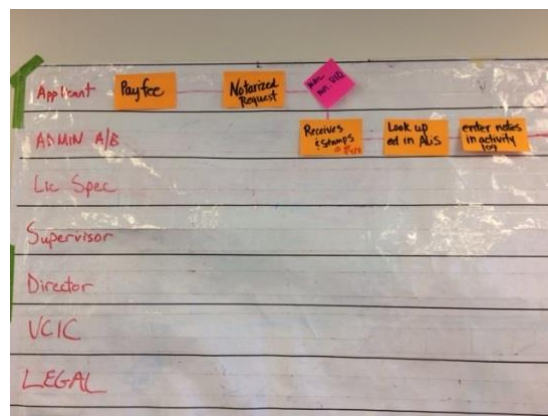 Applicant
Pay fee
Notarized
Request
ADMIN A/B
Receives
& stamps
Look up
ed in ALiS
enter notes
in activity
log
Lic Spec
Supervisor
Director
VCIC
LEGAL